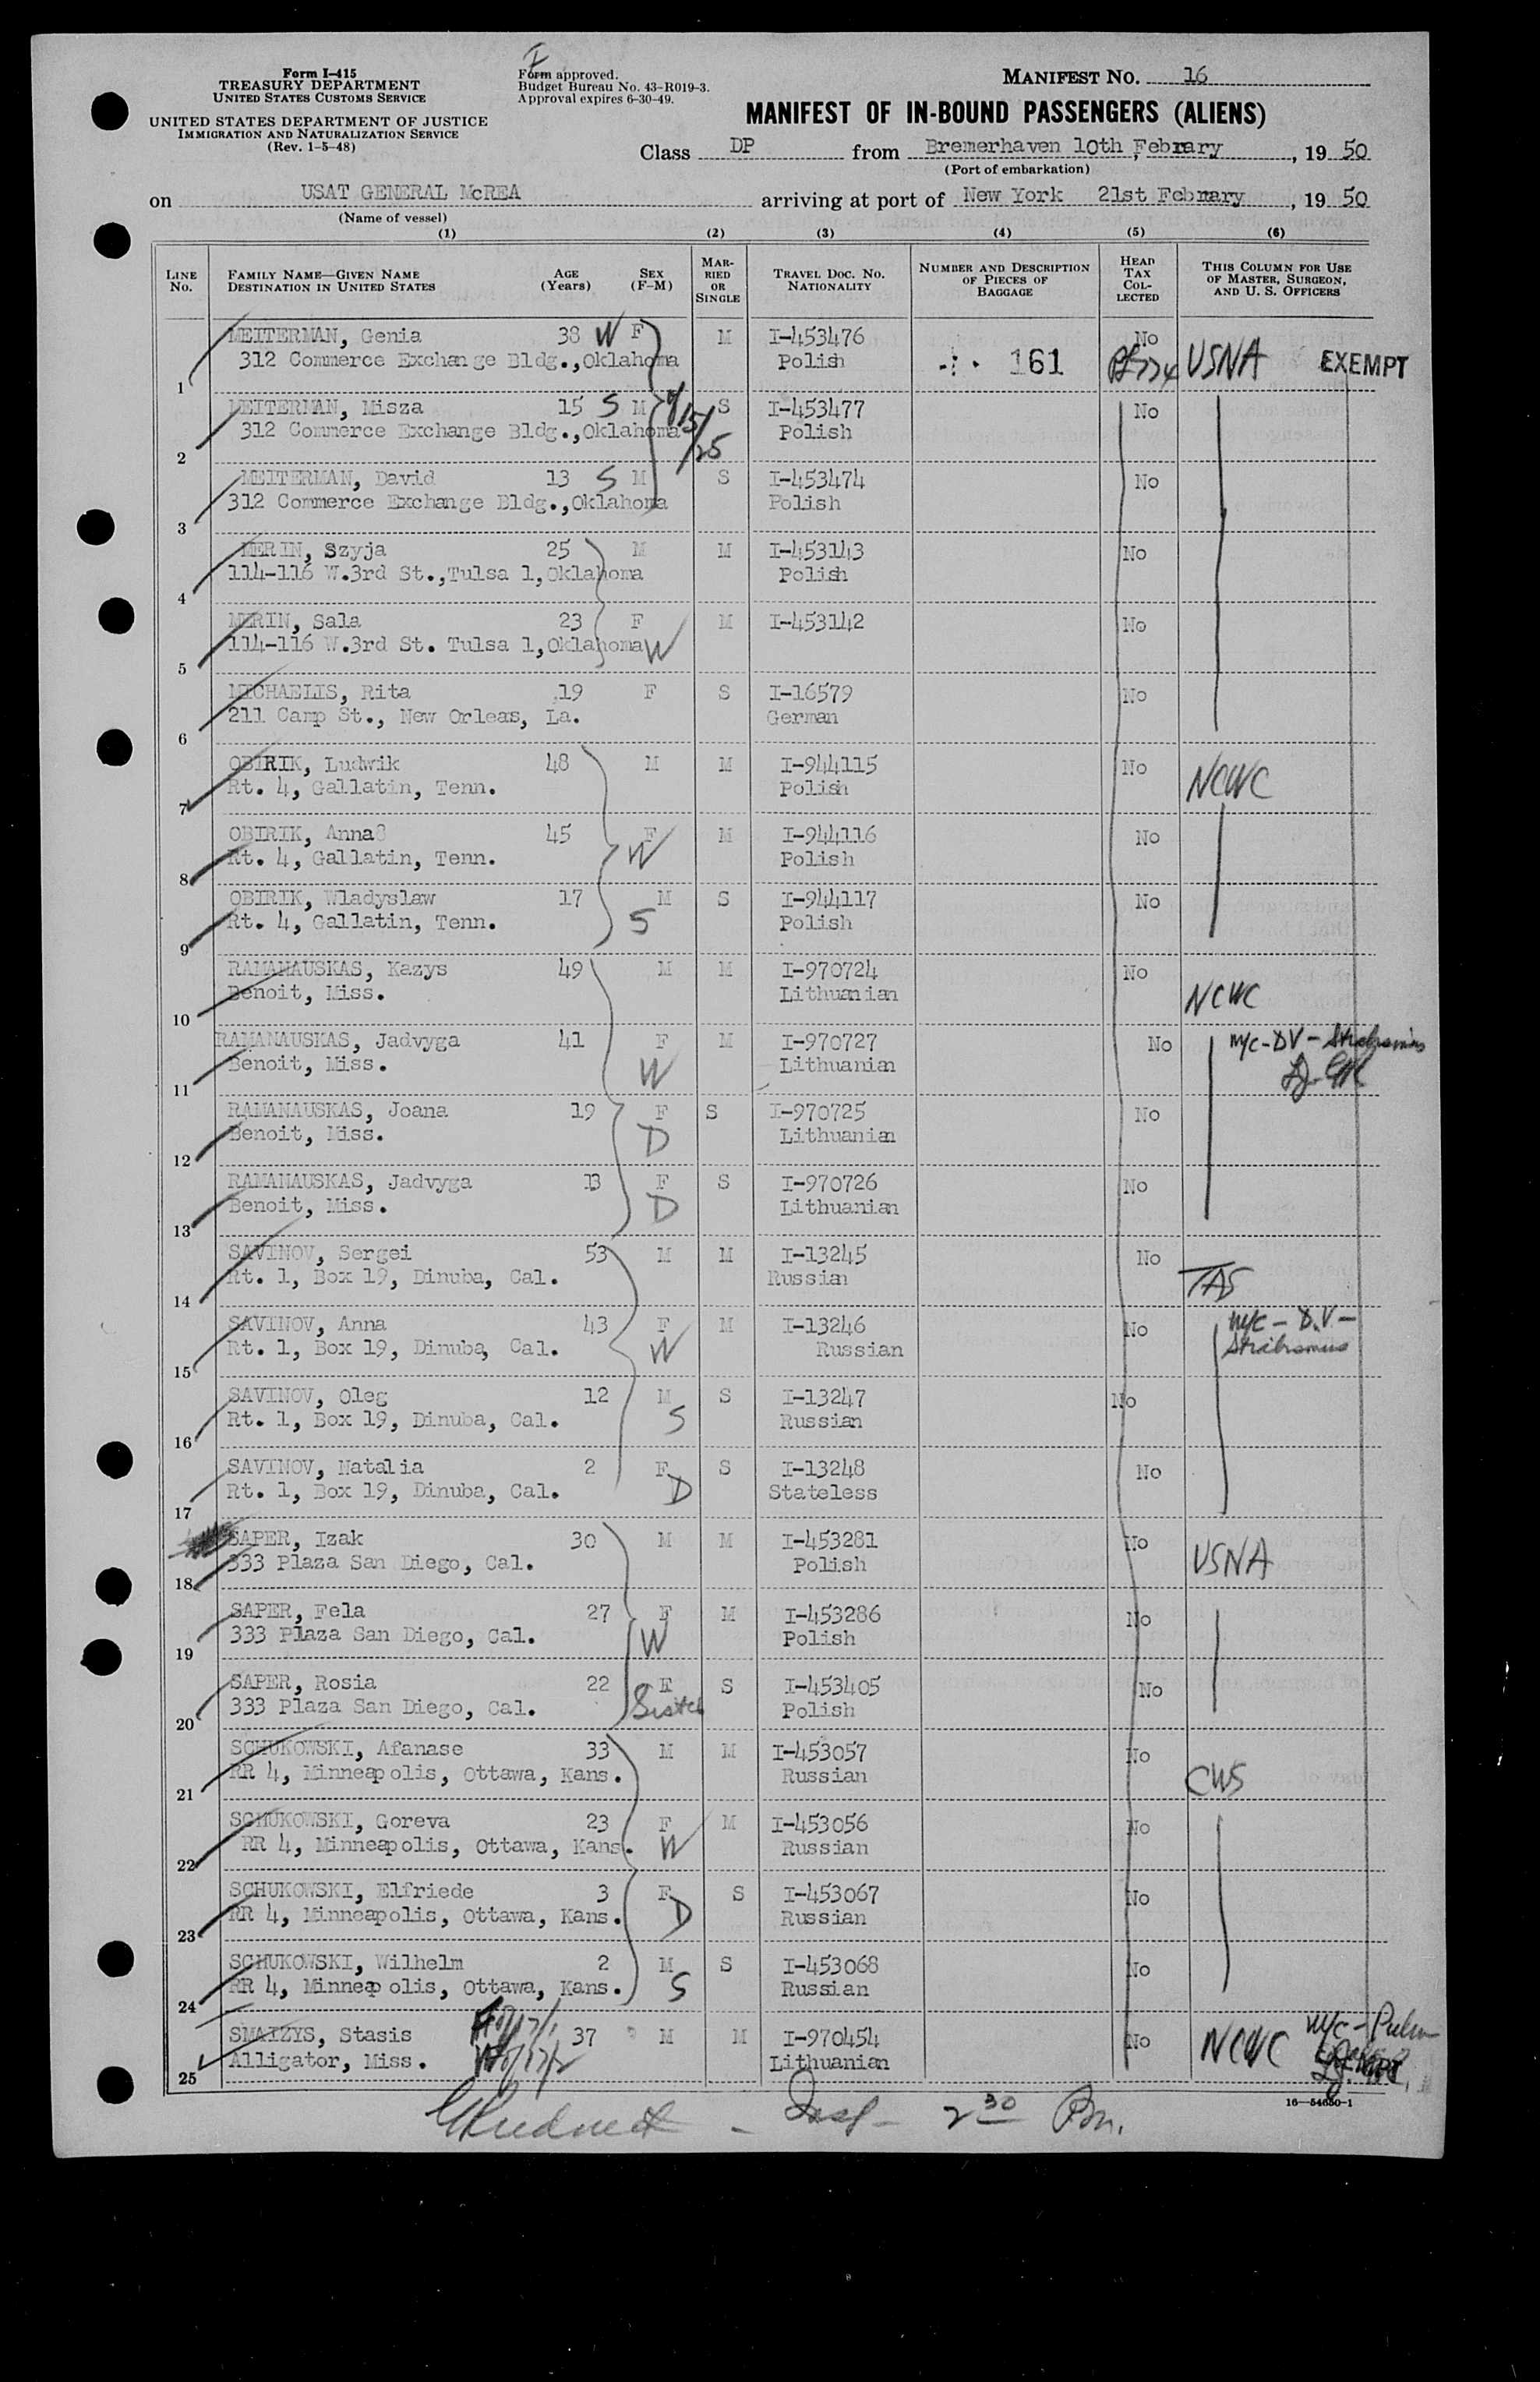 I
Form I-415
TREASURY DEPARTMENT
UNITED STATES CUSTOMS SERVICE
UNITED STATES DEPARTMENT OF JUSTICE
IMMIGRATION AND NATURALIZATION SERVICE
(Rev. 1-5-48)
Form approved.
Budget Bureau No. 43-R019-3.
Approval expires 6-30-49.
MANIFEST NO. 16
MANIFEST OF IN-BOUND PASSENGERS (ALIENS)
Class DP from Bremerhaven 10th, Febrary, 19 50
(Port of embarkation)
on USAT GENERAL McREA arriving at port of New York 21st Febrary, 19 50
(Name of vessel)
(1) (2) (3) (4) (5) (6)
LINE NO. FAMILY NAME—GIVEN NAME DESTINATION IN UNITED STATES AGE (YEARS) SEX (F-M) MARRIED OR SINGLE TRAVEL DOC. NO. NATIONALITY NUMBER AND DESCRIPTION OF PIECES OF BAGGAGE HEAD TAX COLLECTED THIS COLUMN FOR USE OF MASTER, SURGEON, AND U. S. OFFICERS
MEITERMAN, Genia 38 W F M I-453476 No
1 312 Commerce Exchange Bldg.,Oklahoma Polish 161 USNA EXEMPT
MEITERMAN, Misza 15 S M S I-453477 No
2 312 Commerce Exchange Bldg.,Oklahoma Polish
MEITERMAN, David 13 S M S I-453474 No
3 312 Commerce Exchange Bldg.,Oklahoma Polish
MERIN, Szyja 25 M M I-453143 No
4 114-116 W.3rd St.,Tulsa 1,Oklahoma Polish
MERIN, Sala 23 F M I-453142 No
5 114-116 W.3rd St. Tulsa 1,Oklahoma W
MICHAELIS, Rita 19 F S I-16579 No
6 211 Camp St., New Orleas, La. German
OBIRIK, Ludwik 48 M M I-944115 No
7 Rt. 4, Gallatin, Tenn. Polish NCWC
OBIRIK, Anna 45 F M I-944116 No
8 Rt. 4, Gallatin, Tenn. W Polish
OBIRIK, Wladyslaw 17 M S I-944117 No
9 Rt. 4, Gallatin, Tenn. S Polish
RAMANAUSKAS, Kazys 49 M M I-970724 No
10 Benoit, Miss. Lithuanian NCWC
RAMANAUSKAS, Jadvyga 41 F M I-970727 No M/C-DV-Strabismus
11 Benoit, Miss. W Lithuanian
RAMANAUSKAS, Joana 19 F S I-970725 No
12 Benoit, Miss. D Lithuanian
RAMANAUSKAS, Jadvyga 13 F S I-970726 No
13 Benoit, Miss. D Lithuanian
SAVINOV, Sergei 53 M M I-13245 No
14 Rt. 1, Box 19, Dinuba, Cal. Russian
SAVINOV, Anna 43 F M I-13246 No M/C - D.V-
15 Rt. 1, Box 19, Dinuba, Cal. W Russian Strabismus
SAVINOV, Oleg 12 M S I-13247 No
16 Rt. 1, Box 19, Dinuba, Cal. S Russian
SAVINOV, Natalia 2 F S I-13248 No
17 Rt. 1, Box 19, Dinuba, Cal. D Stateless
SAPER, Izak 30 M M I-453281 No
18 333 Plaza San Diego, Cal. Polish USNA
SAPER, Fela 27 F M I-453286 No
19 333 Plaza San Diego, Cal. W Polish
SAPER, Rosia 22 F S I-453405 No
20 333 Plaza San Diego, Cal. Sister Polish
SCHUKOWSKI, Afanase 33 M M I-453057 No
21 RR 4, Minneapolis, Ottawa, Kans. Russian CWS
SCHUKOWSKI, Goreva 23 F M I-453056 No
22 RR 4, Minneapolis, Ottawa, Kans. W Russian
SCHUKOWSKI, Elfriede 3 F S I-453067 No
23 RR 4, Minneapolis, Ottawa, Kans. D Russian
SCHUKOWSKI, Wilhelm 2 M S I-453068 No
24 RR 4, Minneapolis, Ottawa, Kans. S Russian
SMAIZYS, Stasis 37 M M I-970454 No NCWC M/C-Pulm
25 Alligator, Miss. Lithuanian
Insp- 2 30 Pm.
16-54650-1